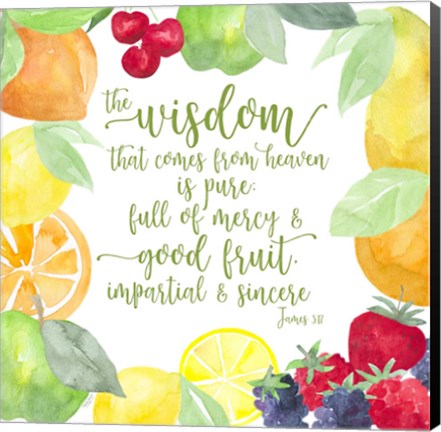 the wisdom
that comes from heaven
is pure:
full of mercy &
good fruit,
impartial & sincere
James 3:17